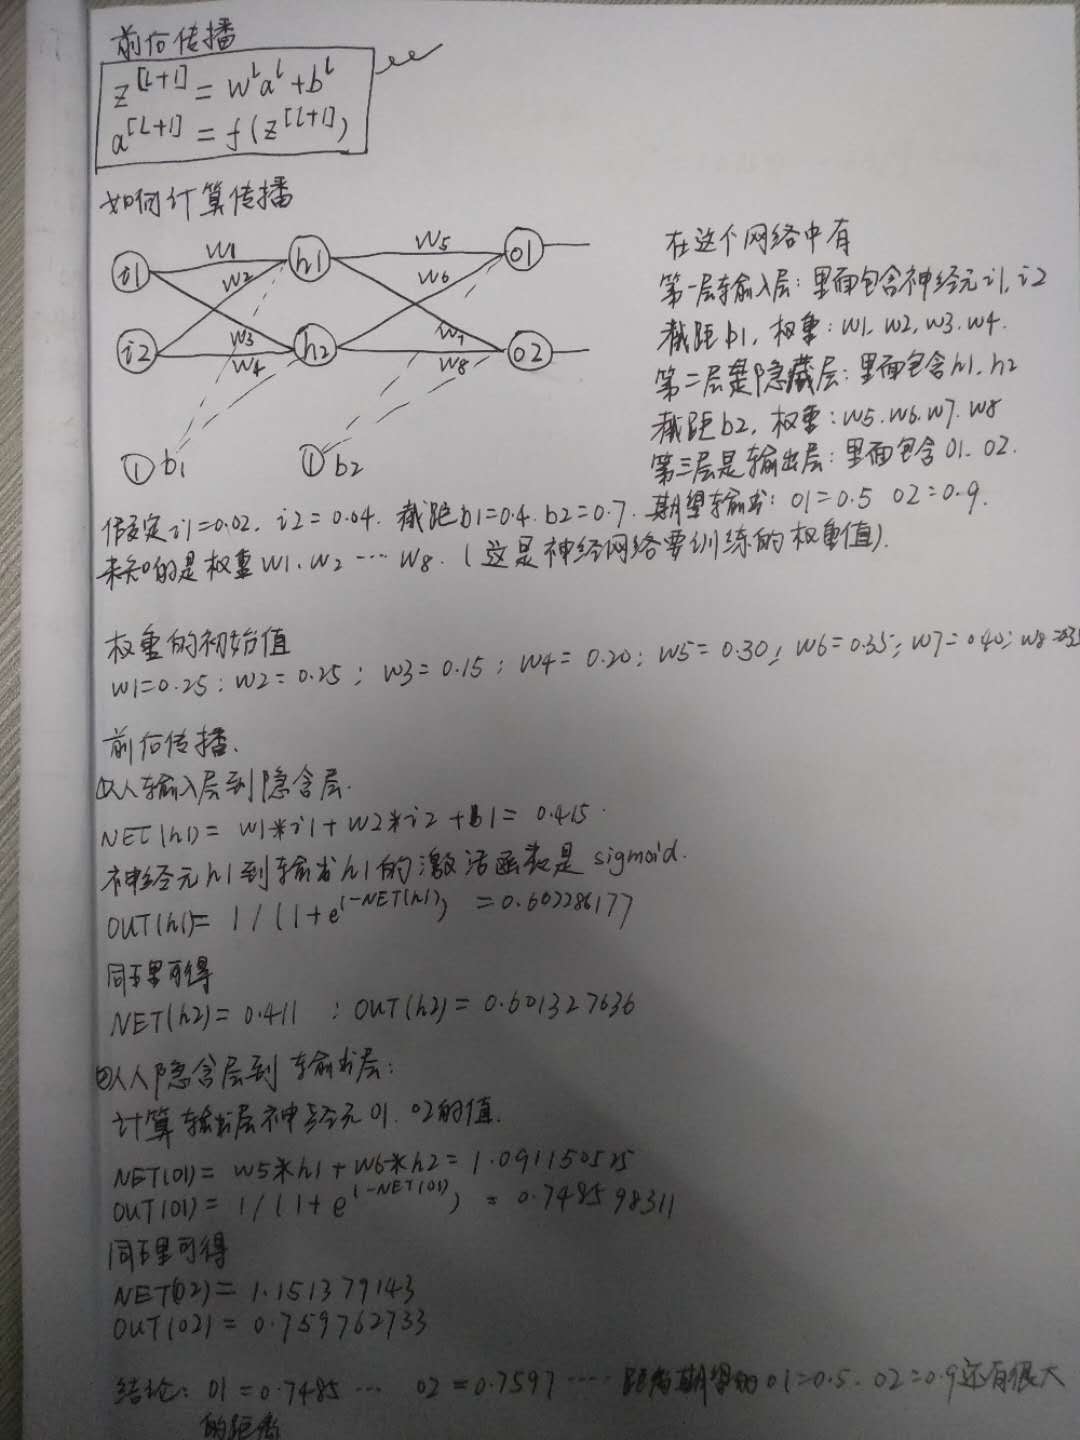 前向传播
z^[l+1] = w^l a^l + b^l
a^[l+1] = f(z^[l+1])
如何计算传播
i1 w1 h1 w5 o1
w2 w6
i2 w3 h2 w7 o2
w4 w8
① b1 ① b2
在这个网络中有
第一层输入层: 里面包含神经元i1, i2
截距b1, 权重: w1. w2, w3. w4.
第二层是隐藏层: 里面包含h1. h2
截距b2, 权重: w5. w6. w7. w8
第三层是输出层: 里面包含 o1. o2.
假定i1=0.02, i2=0.04. 截距b1=0.4. b2=0.7. 期望输出: o1=0.5 o2=0.9.
未知的是权重w1. w2 … w8. (这是神经网络要训练的权重值).
权重的初始值
w1=0.25; w2=0.25; w3=0.15; w4=0.20; w5=0.30; w6=0.35; w7=0.40; w8=0.35
前向传播.
①从输入层到隐含层.
NET(h1)= w1*i1+w2*i2+b1=0.415.
神经元h1到输出h1的激活函数是sigmoid.
OUT(h1)= 1/(1+e^(-NET(h1)) =0.602286177
同理可得
NET(h2)=0.411 ; OUT(h2)=0.601327636
②从隐含层到输出层:
计算输出层神经元o1. o2的值.
NET(o1)= w5*h1+w6*h2=1.091150525
OUT(o1)= 1/(1+e^(-NET(o1)) = 0.748598311
同理可得
NET(o2)=1.151379143
OUT(o2)=0.759762733
结论: o1=0.7485… o2=0.7597…… 距离期望的o1=0.5. o2=0.9还有很大
的距离